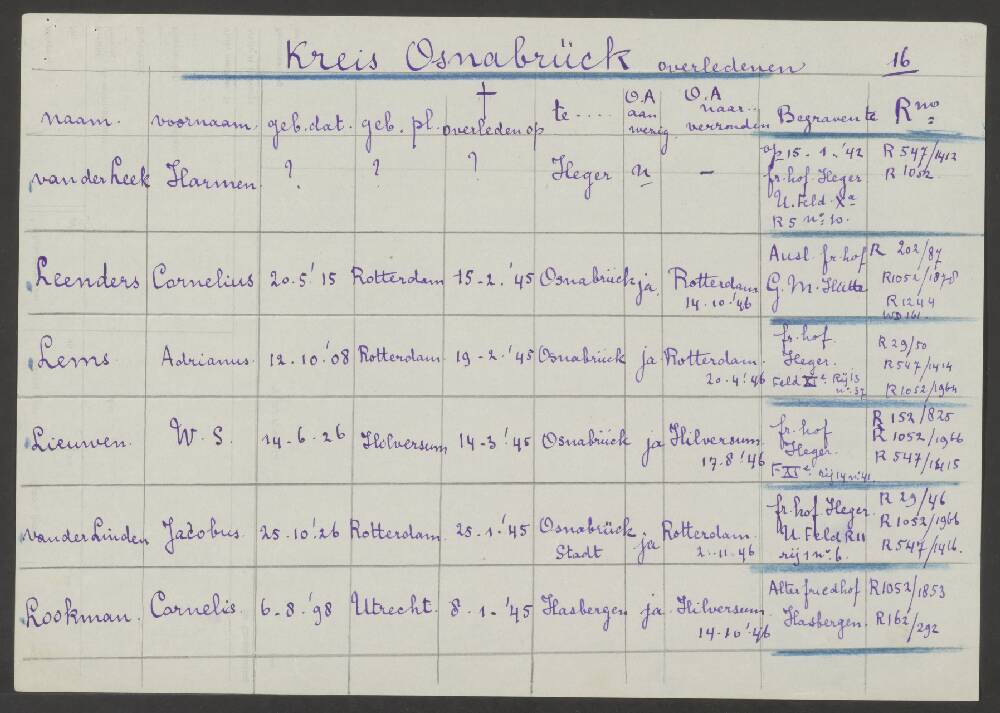 Kreis Osnabrück overledenen 16
naam. voornaam. geb. dat. geb. pl. † overleden op te .... O.A aan wezig O.A naar verzonden Begraven te R no
van der Leek Harmen ? ? ? Heger n - op 15-1-'42 R 547/1412
fr. hof Heger R 1052
U. Feld Xa
R 5 no 10.
Leenders Cornelius 20.5.'15 Rotterdam 15-2-'45 Osnabrück ja Rotterdam 14.10.'46 Ausl. fr. hof R 202/87
G. M. Hütte R1052/1878
R 1244
WD 161
Lems Adrianus 12.10.'08 Rotterdam 19-2-'45 Osnabrück ja Rotterdam 20.4.'46 fr. hof R 29/50
Heger. R547/1414
Feld XIc. Rij 13 no. 37 R1052/1964
Lieuwen W. S. 14-6-26 Hilversum 14-3-'45 Osnabrück ja Hilversum 17.8.'46 fr. hof R 152/825
Heger. R 1052/1966
F XIc. rij 14 no 41. R 547/1415
van der Linden Jacobus 25.10.'26 Rotterdam 25.1.'45 Osnabrück Stadt ja Rotterdam 2.11.'46 fr. hof Heger R 29/46
U. Feld R11 R1052/1966
rij 1 no. 6. R547/1416.
Lookman. Cornelis. 6-8.'98 Utrecht. 8.1-'45 Hasbergen ja Hilversum 14-10-'46 Alter friedhof R1052/1853
Hasbergen. R162/292